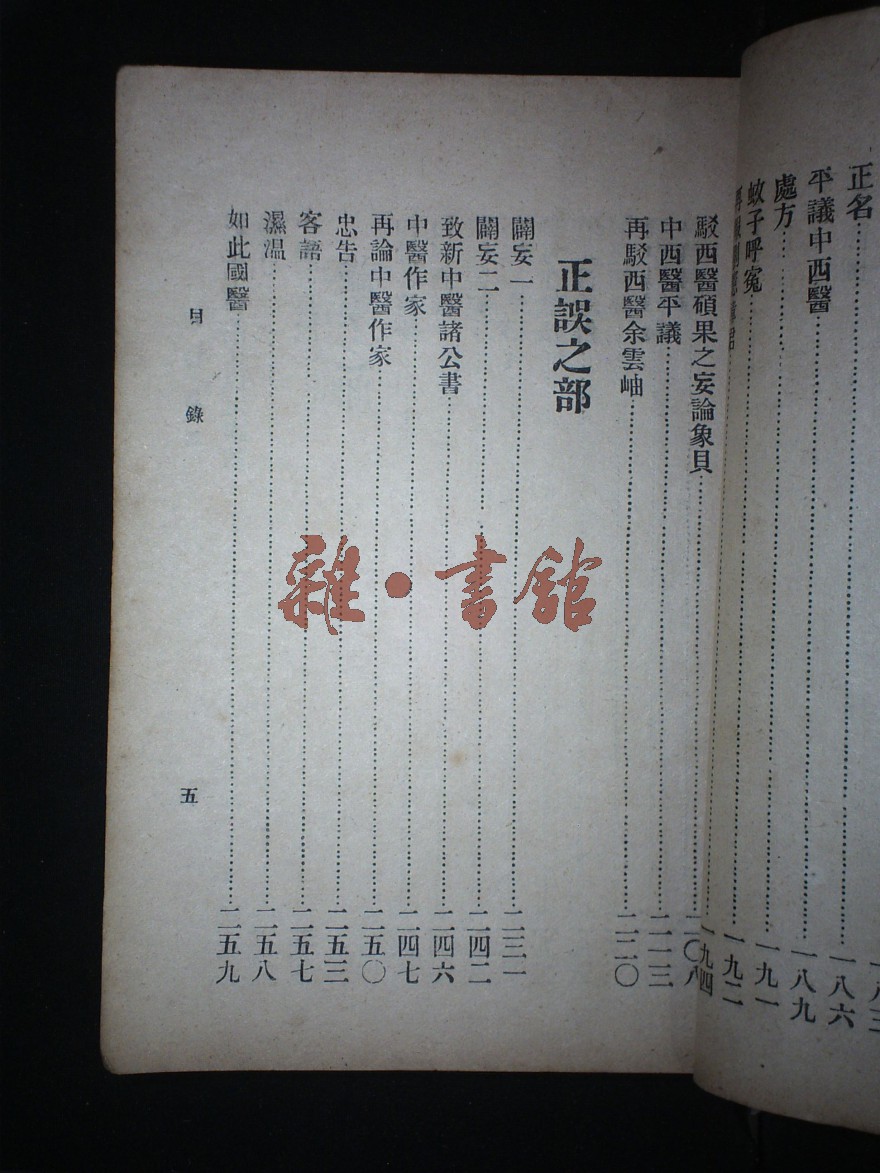 正名 一八六
平議中西醫 一八九
處方 一九一
蚊子呼冤 一九二
一九四
駁西醫碩果之妄論象貝 二〇八
中西醫平議 二一三
再駁西醫余雲岫 二二〇
正誤之部
闢妄一 二三一
闢妄二 二四二
致新中醫諸公書 二四六
中醫作家 二四七
再論中醫作家 二五〇
忠告 二五三
客語 二五七
濕温 二五八
如此國醫 二五九
目錄
五
雜·書館